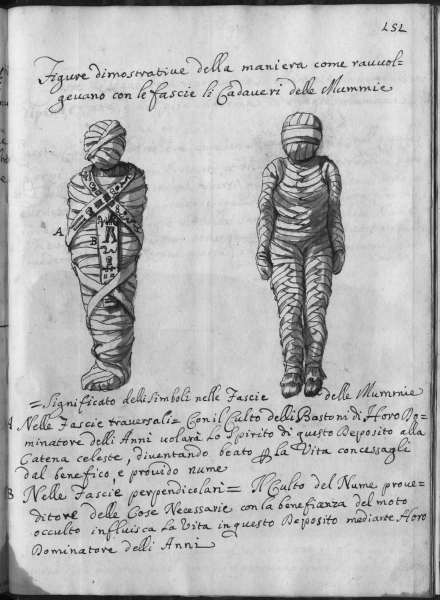 LSL
Figure dimostrative della maniera come rauuol=
geuano con le fascie li Cadaueri delle Mummie
A
B
=Significato delli simboli nelle Fascie delle Mummie
A Nelle Fascie trauersali= Con il Culto delli Bastoni di Horo Do=
minatore delli Anni uolarà Lo Spirito di questo Deposito alla
Catena celeste, diuentando beato La Vita concessagli
dal benefico, e prouido nume
B Nelle Fascie perpendicolari= Il Culto del Nume proue=
ditore delle Cose Necessarie con la benefianza del moto
occulto influisca La Vita in questo Deposito mediante Horo
Dominatore delli Anni